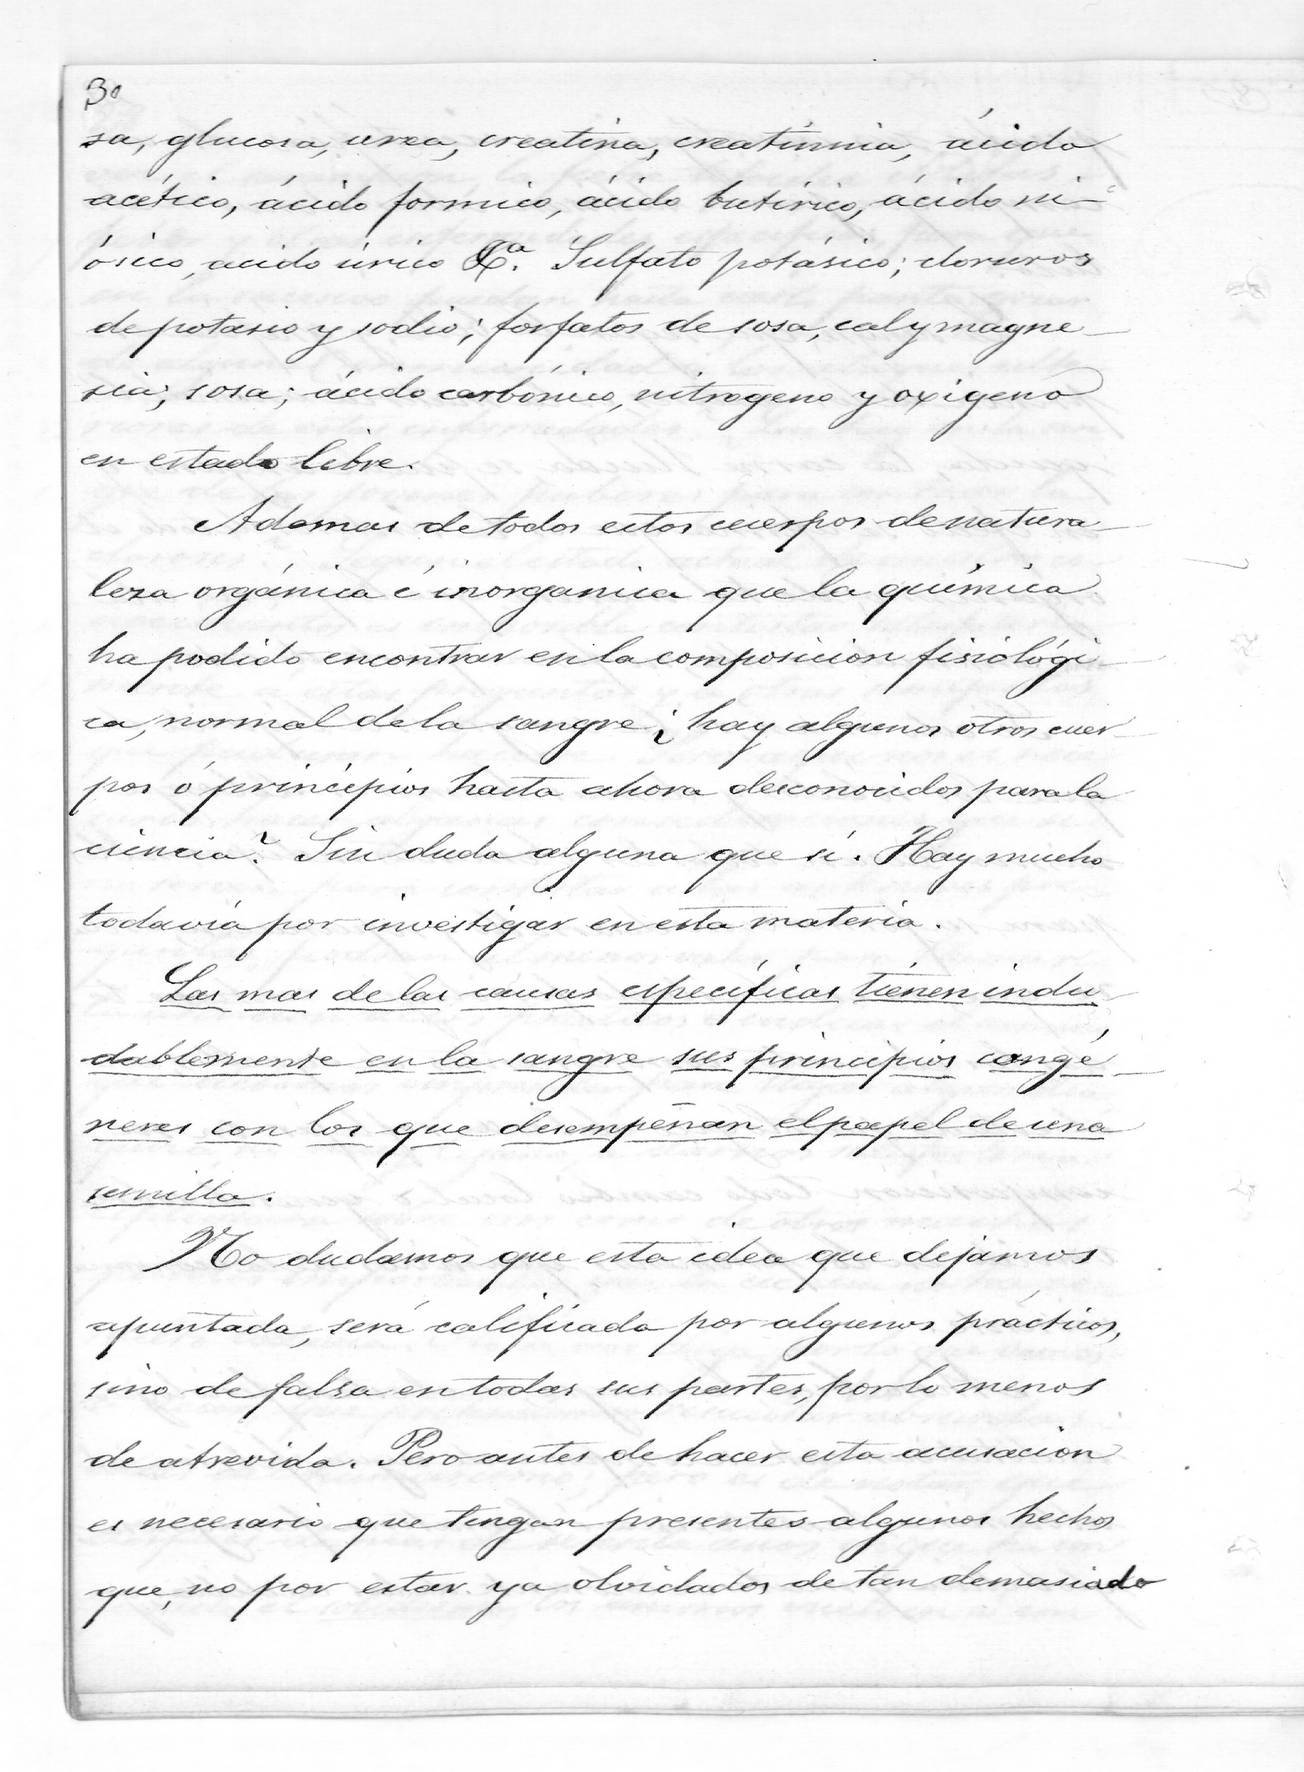 30
sa, glucosa, urea, creatina, creatinina, ácido
acético, ácido fórmico, ácido butírico, ácido ni-
ósico, acido úrico &ª. Sulfato potásico; cloruros
de potasio y sodio; fosfatos de sosa, cal y magne-
sia; sosa; ácido carbónico, nitrogeno y oxigeno
en estado libre.
Ademas de todos estos cuerpos de natura-
leza orgánica é inorganica que la química
ha podido encontrar en la composicion fisiológi-
ca, normal de la sangre ¿hay algunos otros cuer-
pos ó principios hasta ahora desconocidos para la
ciencia? Sin duda alguna que sí. Hay mucho
todavía por investigar en esta materia.
Las mas de las causas específicas tienen indu-
dablemente en la sangre sus principios congé-
neres con los que desempeñan el papel de una
semilla.
No dudamos que esta idea que dejamos
apuntada, será calificada por algunos prácticos,
sino de falsa en todas sus partes, por lo menos
de atrevida. Pero antes de hacer esta acusacion
es necesario que tengan presentes algunos hechos
que, no por estar ya olvidados de tan demasiado